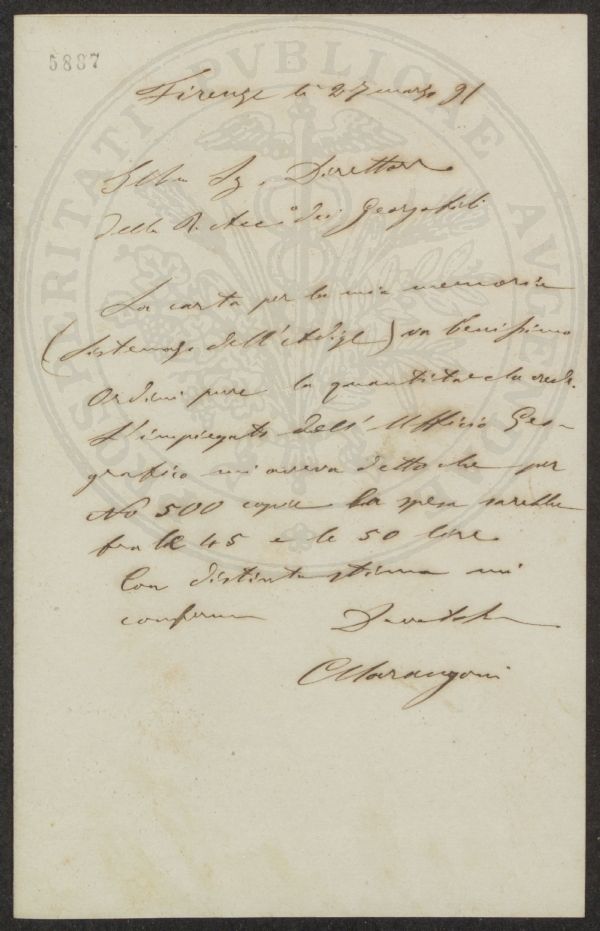 5887
PROSPERITATI PVBLICAE AVGENDAE
Firenze lì 27 marzo 91
Ill.mo Sig. Direttore
della R. Acc.a dei Georgofili
La carta per la mia memoria
(Sistemaz. dell'Adige) va benissimo
Ordini pure la quantità che crede.
L'impiegato dell'Ufficio Geo-
grafico mi aveva detto che per
No 500 copie la spesa sarebbe
fra le 45 e le 50 lire
Con distinta stima mi
confermo Devot.
CMarangoni